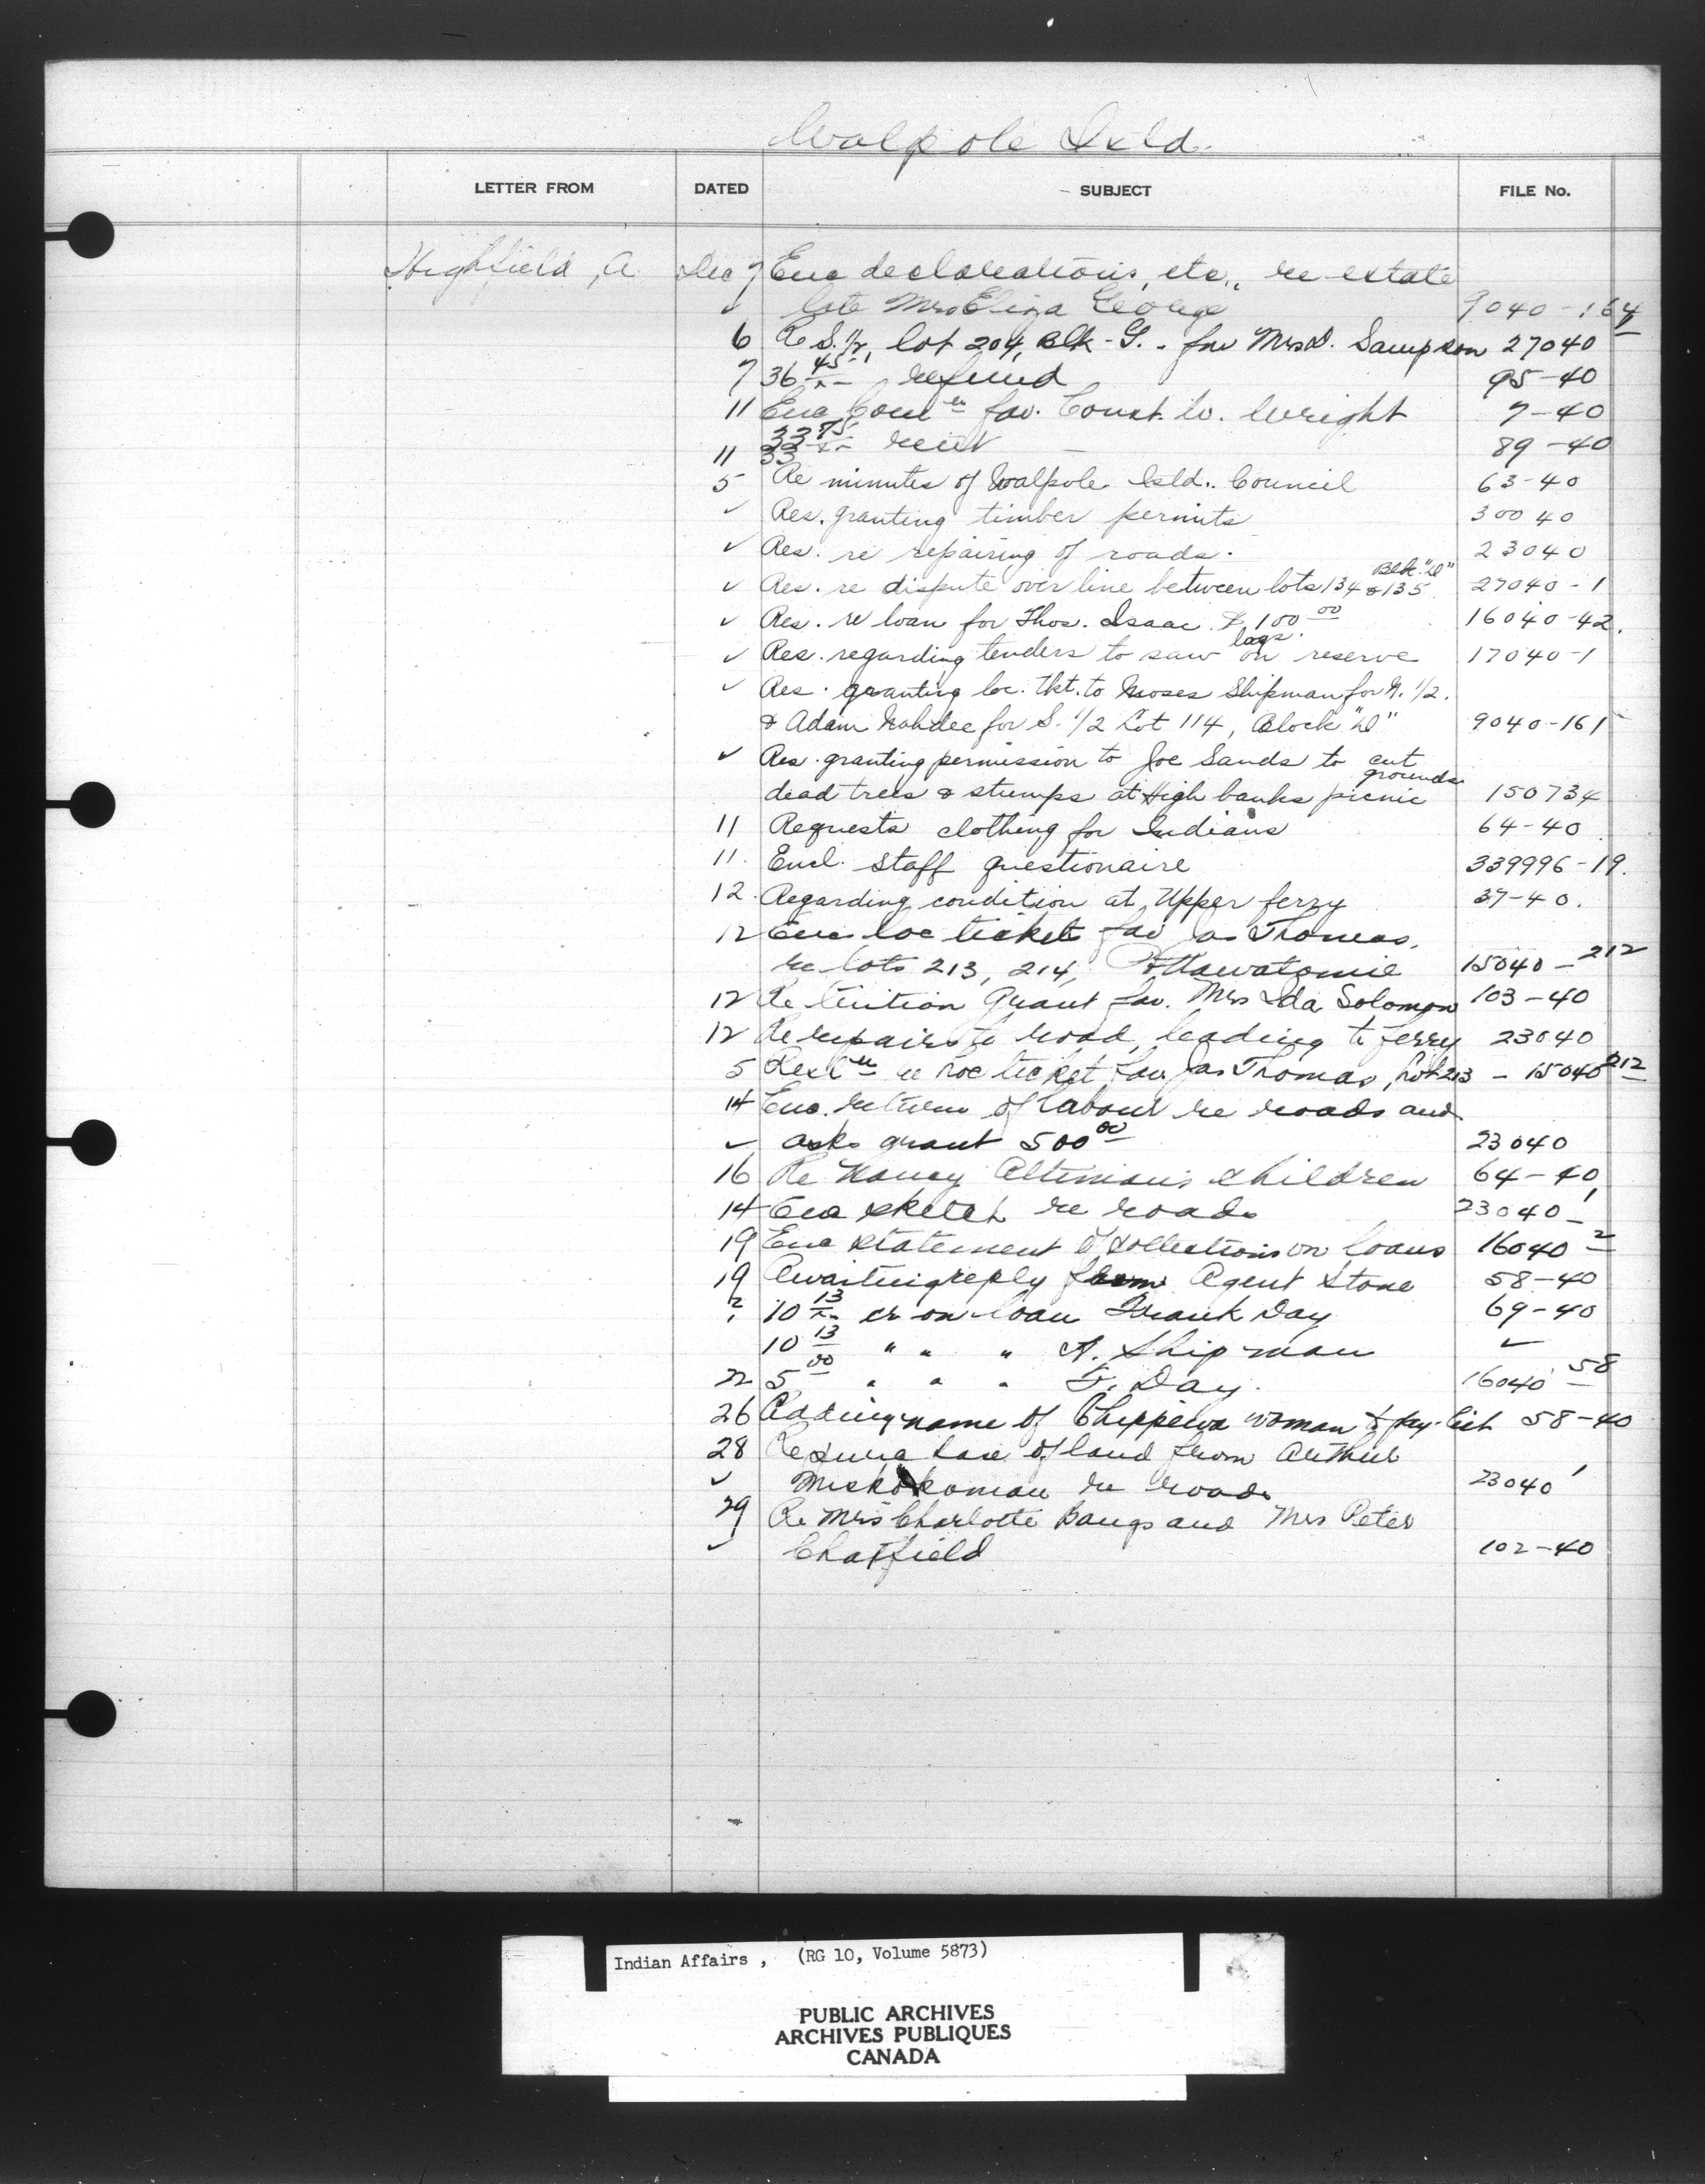 Walpole Isld.
LETTER FROM DATED SUBJECT FILE No.
Highfield, A Dec 7 Enc declarations, etc., re estate
✓ late Mrs Eliza George 9040-164
6 Re S. 1/2, lot 204, Blk-G. - for Mrs D. Sampson 27040
7 36 45/xx refund 95-40
11 Enc Comn fav. Const. W. Wright 7-40
11 33 75/xx rent 89-40
5 Re minutes of Walpole Isld. Council 63-40
✓ Res. granting timber permits 30040
✓ Res. re repairing of roads. 23040
✓ Res. re dispute over line between lots 134 & 135 Blk. "D" 27040-1
✓ Res. re loan for Thos. Isaac $100 00 16040-42.
✓ Res. regarding tenders to saw logs on reserve 17040-1
✓ Res. granting loc. tkt. to Moses Shipman for N. 1/2.
& Adam Nahdee for S. 1/2 Lot 114, Block "D" 9040-161
✓ Res. granting permission to Joe Sands to cut
dead trees & stumps at High banks picnic grounds 150734
11 Requests clothing for Indians 64-40
11. Encl. staff questionaire 339996-19.
12. Regarding condition at Upper ferry 37-40.
12 Enc loc ticket fav Jas Thomas.
re lots 213, 214, Pottawatomie 15040-212
12 Re tuition grant fav. Mrs Ida Solomon 103-40
12 Re repairs to road, leading to ferry 23040
5 re loc ticket fav. Jas Thomas, Lot 213 - 15040 212
14 Enc. return of labour re roads and
✓ asks grant 500 00 23040
16 Re Nancy children 64-40
14 Enc sketch re roads 23040-1
19 Enc statement of collections on loans 16040-2
19 Awaiting reply from Agent Stone 58-40
? 10 13/xx cr on loan Frank Day 69-40
10 13 " " " A. Shipman ✓
22 5 00 " " " F. Day. 16040-58
26 Adding name of Chippewa woman to pay-list 58-40
28 Re of land from Arthur
✓ Miskokoman re roads 23040 1
29 Re Mrs Charlotte Bangs and Mrs Peter
✓ Chatfield 102-40
Indian Affairs , (RG 10, Volume 5873)
PUBLIC ARCHIVES
ARCHIVES PUBLIQUES
CANADA